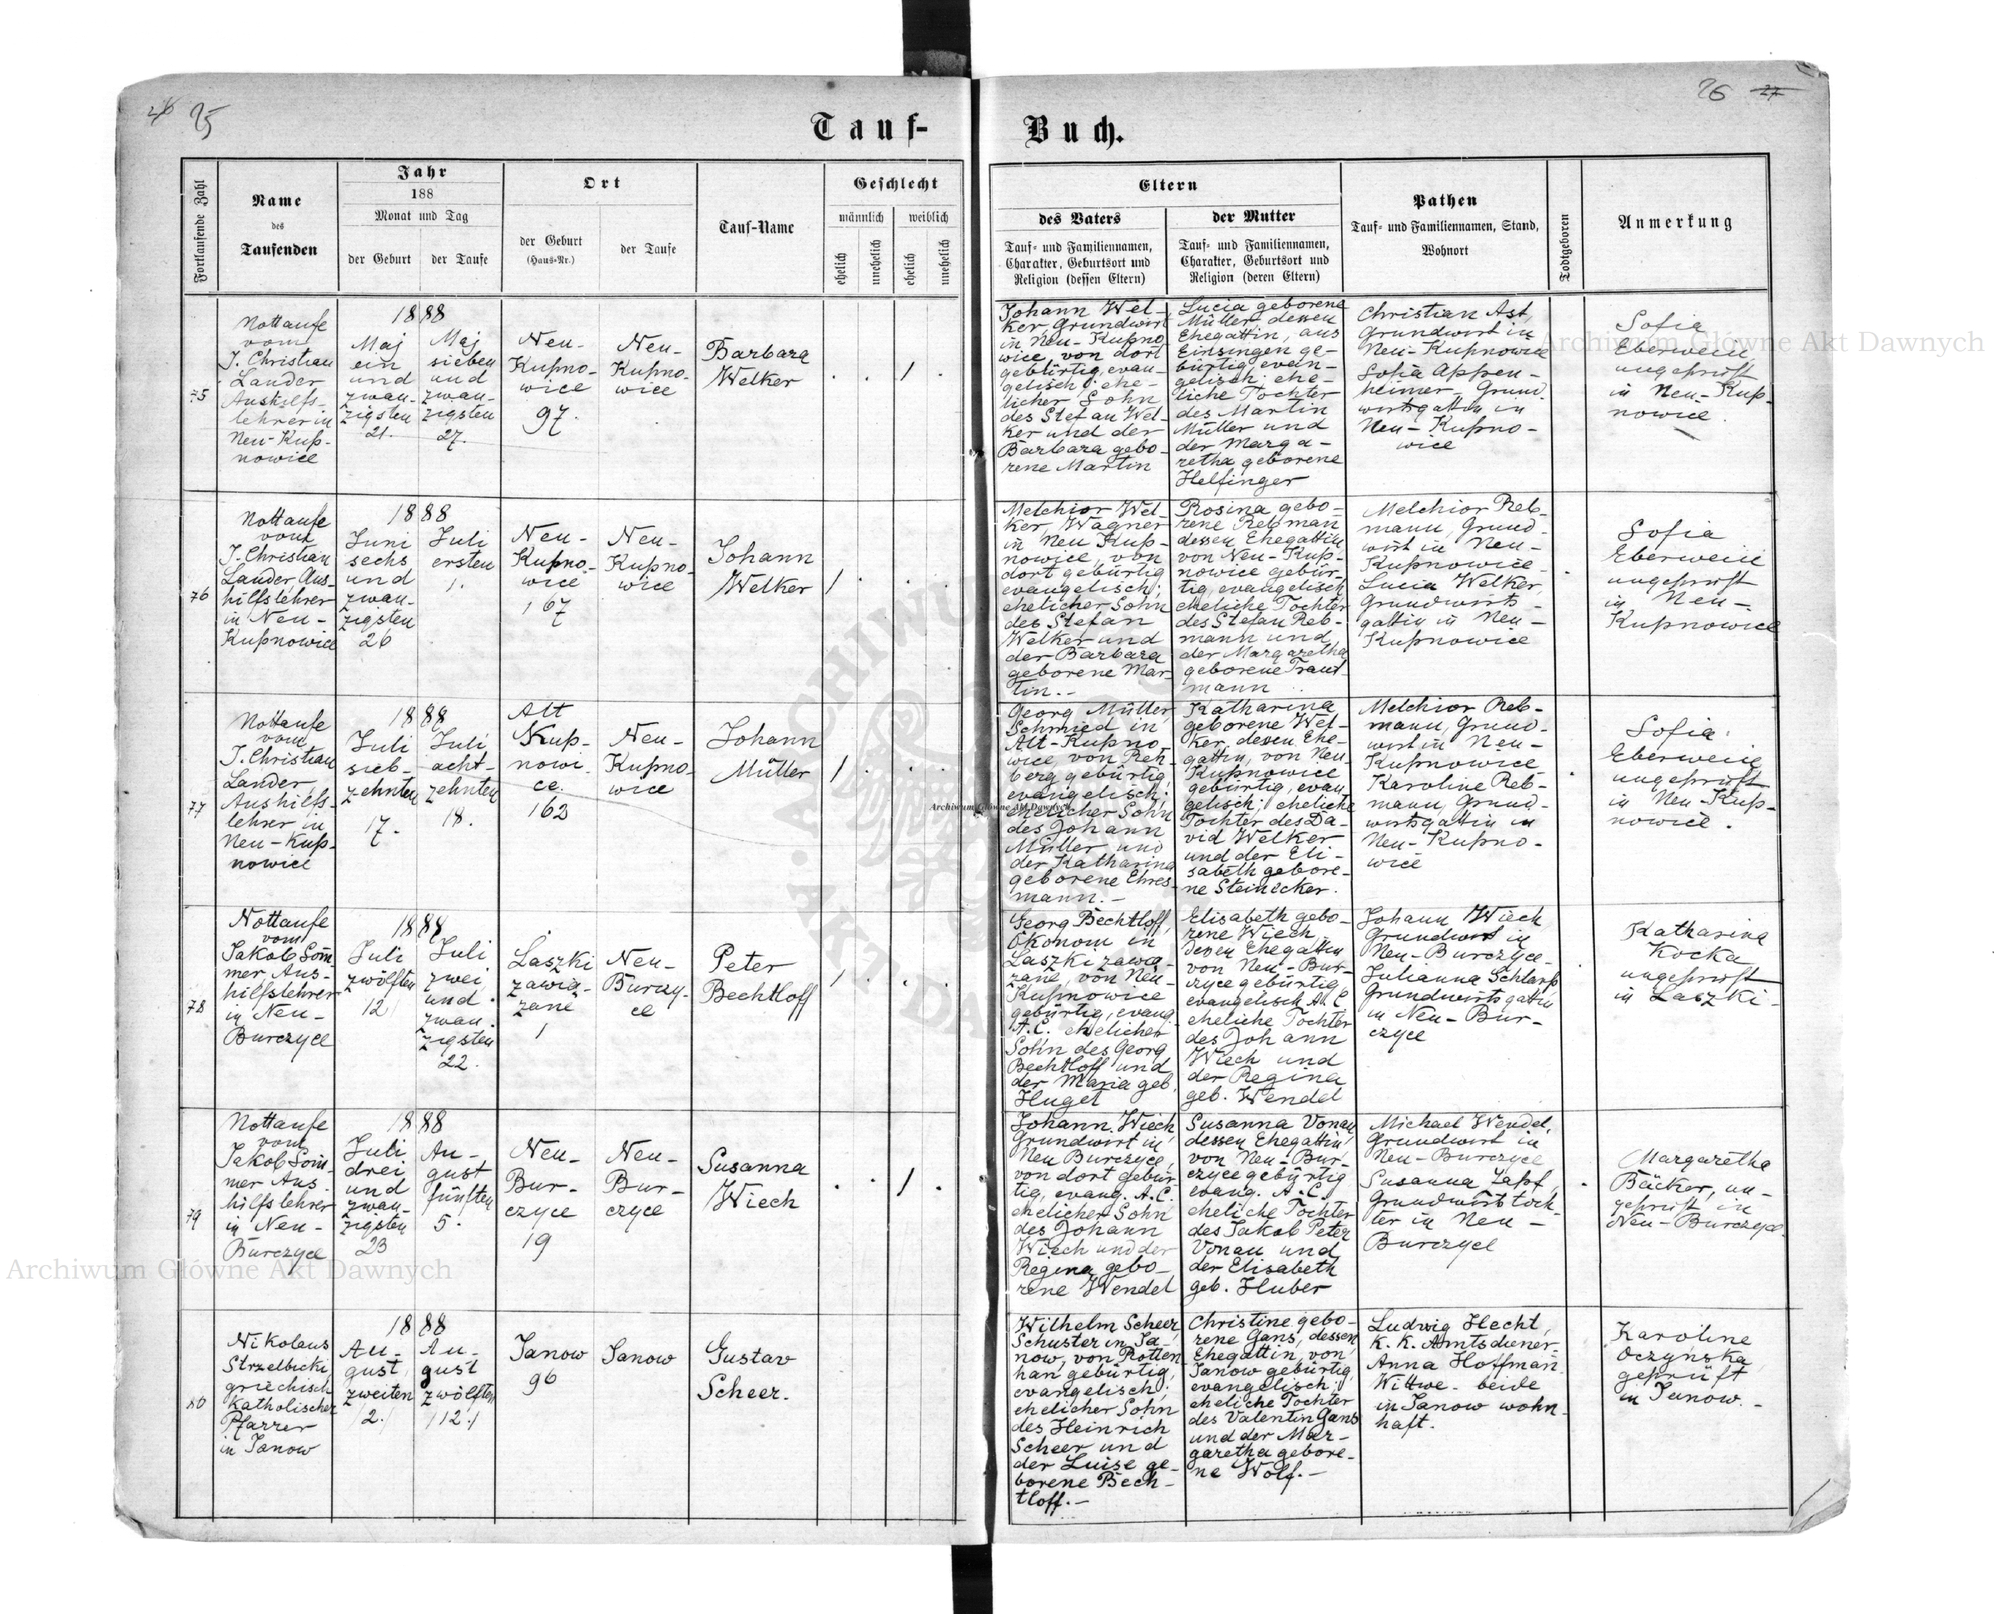 26 25
Tauf-
Buch.
26 27
Fortlaufende Zahl
Name
des
Taufenden
Jahr
188
Monat und Tag
der Geburt
der Taufe
Ort
der Geburt
(Haus-Nr.)
der Taufe
Tauf-Name
Geschlecht
männlich
weiblich
ehelich
unehelich
ehelich
unehelich
Eltern
des Vaters
Tauf- und Familiennamen,
Charakter, Geburtsort und
Religion (dessen Eltern)
der Mutter
Tauf- und Familiennamen,
Charakter, Geburtsort und
Religion (deren Eltern)
Pathen
Tauf- und Familiennamen, Stand,
Wohnort
Todtgeboren
Anmerkung
75
Nottaufe
vom
J. Christian
Lander
Aushilfs-
lehrer in
Neu-Kup-
nowice
1888
Maj
ein
und
zwan-
zigsten
21.
Maj
sieben
und
zwan-
zigsten
27.
Neu-
Kupno-
wice
97.
Neu-
Kupno-
wice
Barbara
Welker
1
Johann Wel-
ker Grundwirt
in Neu-Kupno
wice, von dort
gebürtig, evan-
gelisch; ehe-
licher Sohn
des Stefan Wel-
ker und der
Barbara gebo-
rene Martin
Lucia geborene
Müller, dessen
Ehegattin, aus
Einsingen ge-
bürtig, evan-
gelisch; ehe-
liche Tochter
des Martin
Müller und
der Marga-
retha geborene
Helfinger
Christian Ast,
Grundwirt in
Neu-Kupnowice
Sofia Appen-
heimer Grund-
wirtsgattin in
Neu-Kupno-
wice
Sofia
Eberwein,
ungeprüft
in Neu-Kup-
nowice.
76
Nottaufe
vom
J. Christian
Lander, Aus-
hilfslehrer
in Neu-
Kupnowice
1888
Juni
sechs
und
zwan-
zigsten
26
Juli
ersten
1.
Neu-
Kupno-
wice
167
Neu-
Kupno-
wice
Johann
Welker
1
Melchior Wel-
ker, Wagner
in Neu Kup-
nowice, von
dort gebürtig
evangelisch;
ehelicher Sohn
des Stefan
Welker und
der Barbara
geborene Mar-
tin.-
Rosina gebo-
rene Rebman
dessen Ehegattin
von Neu-Kup-
nowice gebür-
tig, evangelisch
eheliche Tochter
des Stefan Reb-
mann und
der Margaretha
geborene Traut
mann
Melchior Reb-
mann, Grund-
wirt in Neu-
Kupnowice-
Lucia Welker,
Grundwirts-
gattin in Neu-
Kupnowice
Sofia
Eberwein
ungeprüft
in Neu-
Kupnowice
77
Nottaufe
vom
J. Christian
Lander,
Aushilfs-
lehrer in
Neu-Kup-
nowice
1888
Juli
sieb-
zehnten
17.
Juli
acht-
zehnten
18.
Alt
Kup-
nowi-
ce.
163
Neu-
Kupno-
wice
Johann
Müller
1
Georg Müller,
Schmied in
Alt-Kupno
wice, von Reh-
berg gebürtig,
evangelisch;
ehelicher Sohn
des Johann
Müller und
der Katharina
geborene Ehres-
mann.-
Katharina
geborene Wel-
ker, dessen Ehe-
gattin, von Neu-
Kupnowice
gebürtig, evan
gelisch; eheliche
Tochter des Da-
vid Welker
und der Eli-
sabeth gebore-
ne Steinecker.
Melchior Reb-
mann, Grund-
wirt in Neu-
Kupnowice
Karoline Reb-
mann, Grund-
wirtsgattin in
Neu-Kupno-
wice
Sofia
Eberwein
ungeprüft
in Neu-Kup-
nowice.
78
Nottaufe
vom
Jakob Som
mer, Aus-
hilfslehrer
in Neu-
Burczyce
1888
Juli
zwölften
12
Juli
zwei
und
zwan-
zigsten
22.
Laszki
zawią-
zane
1
Neu-
Burczy-
ce
Peter
Bechtloff
1
Georg Bechtloff,
Ökonom in
Laszki zawią-
zane von Neu-
Kupnowice
gebürtig, evang.
A.C. ehelicher
Sohn des Georg
Bechtloff und
der Maria geb.
Hugel
Elisabeth gebo-
rene Wiech
deren Ehegattin
von Neu-Bur-
czyce gebürtig
evangelisch A.C.
eheliche Tochter
des Johann
Wiech und
der Regina
geb. Wendel
Johann Wiech
Grundwirt in
Neu-Burczyce-
Julianna Schlapp
Grundwirtsgattin
in Neu-Bur-
czyce
Katharina
Kocka
ungeprüft
in Laszki-
79
Nottaufe
vom
Jakob Som-
mer Aus-
hilfslehrer
in Neu-
Burczyce
1888
Juli
drei
und
zwan-
zigsten
23
Au-
gust
fünften
5.
Neu-
Bur-
czyce
19
Neu-
Bur-
czyce
Susanna
Wiech
1
Johann Wiech
Grundwirt in
Neu Burczyce,
von dort gebür-
tig, evang. A.C.
ehelicher Sohn
des Johann
Wiech und der
Regina gebo-
rene Wendel
Susanna Vonau
dessen Ehegattin
von Neu-Bur-
czyce gebürtig
evang. A.C.
eheliche Tochter
des Jakob Peter
Vonau und
der Elisabeth
geb. Huber
Michael Wendel,
Grundwirt in
Neu-Burczyce
Susanna Zapf,
Grundwirtstoch-
ter in Neu-
Burczyce
Margaretha
Bäcker, un-
geprüft in
Neu-Burczyce.
80
Nikolaus
Strzelbicki
griechisch
katholischer
Pfarrer
in Janow
1888
Au-
gust
zweiten
2.
Au-
gust
zwölften
12.
Janow
96
Janow
Gustav
Scheer.
Wilhelm Scheer
Schuster in Ja-
now, von Rotten
han gebürtig,
evangelisch;
ehelicher Sohn
des Heinrich
Scheer und
der Luise ge-
borene Bech-
tloff.-
Christine gebo-
rene Gans, dessen
Ehegattin, von
Janow gebürtig,
evangelisch;
eheliche Tochter
des Valentin Gans
und der Mar-
garetha gebore-
ne Wolf.-
Ludwig Hecht,
K. K. Amtsdiener-
Anna Hoffman
Wittwe- beide
in Janow wohn-
haft.
Karoline
Oczynska
geprüft
in Janow.-
Archiwum Główne Akt Dawnych
Archiwum Główne Akt Dawnych
Archiwum Główne Akt Dawnych